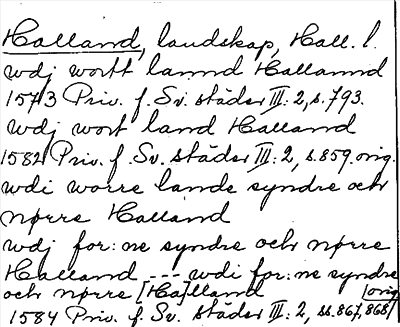 Halland, landskap, Hall. l.
wdj wortt lannd Hallannd
1573 Priv. f. Sv. städer III: 2, s. 793.
wdj wort land Halland
1582 Priv. f. Sv. städer III: 2, s. 859. orig.
wdi worre lande syndre och
nørre Halland
wdj for: ne syndre och nørre
Halland --- wdi for: ne syndre
och nørre [Ha]lland orig
1584 Priv. f. Sv. städer III: 2, ss. 867, 868